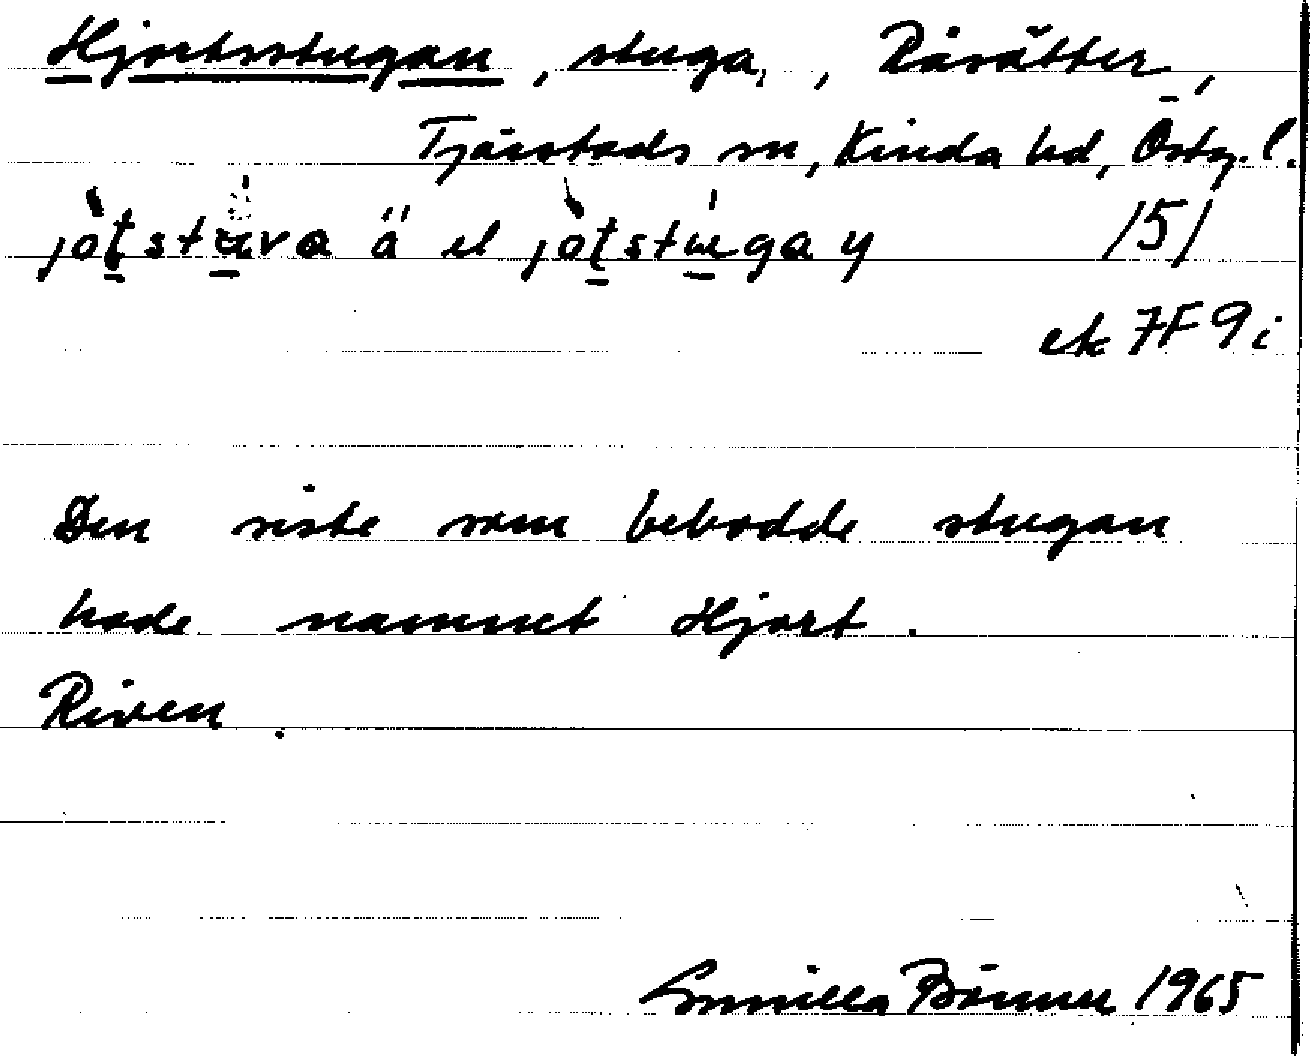 Hjortsstugan, stuga, Råsätter,
Tjärstads sn, Kinda hd, Östg.l.
jòt̠stu̠va ä el jòt̠stu̠ga y /5/
ek 7F9i
Den siste som bebodde stugan
hade namnet Hjort.
Riven.
Gunilla 1965